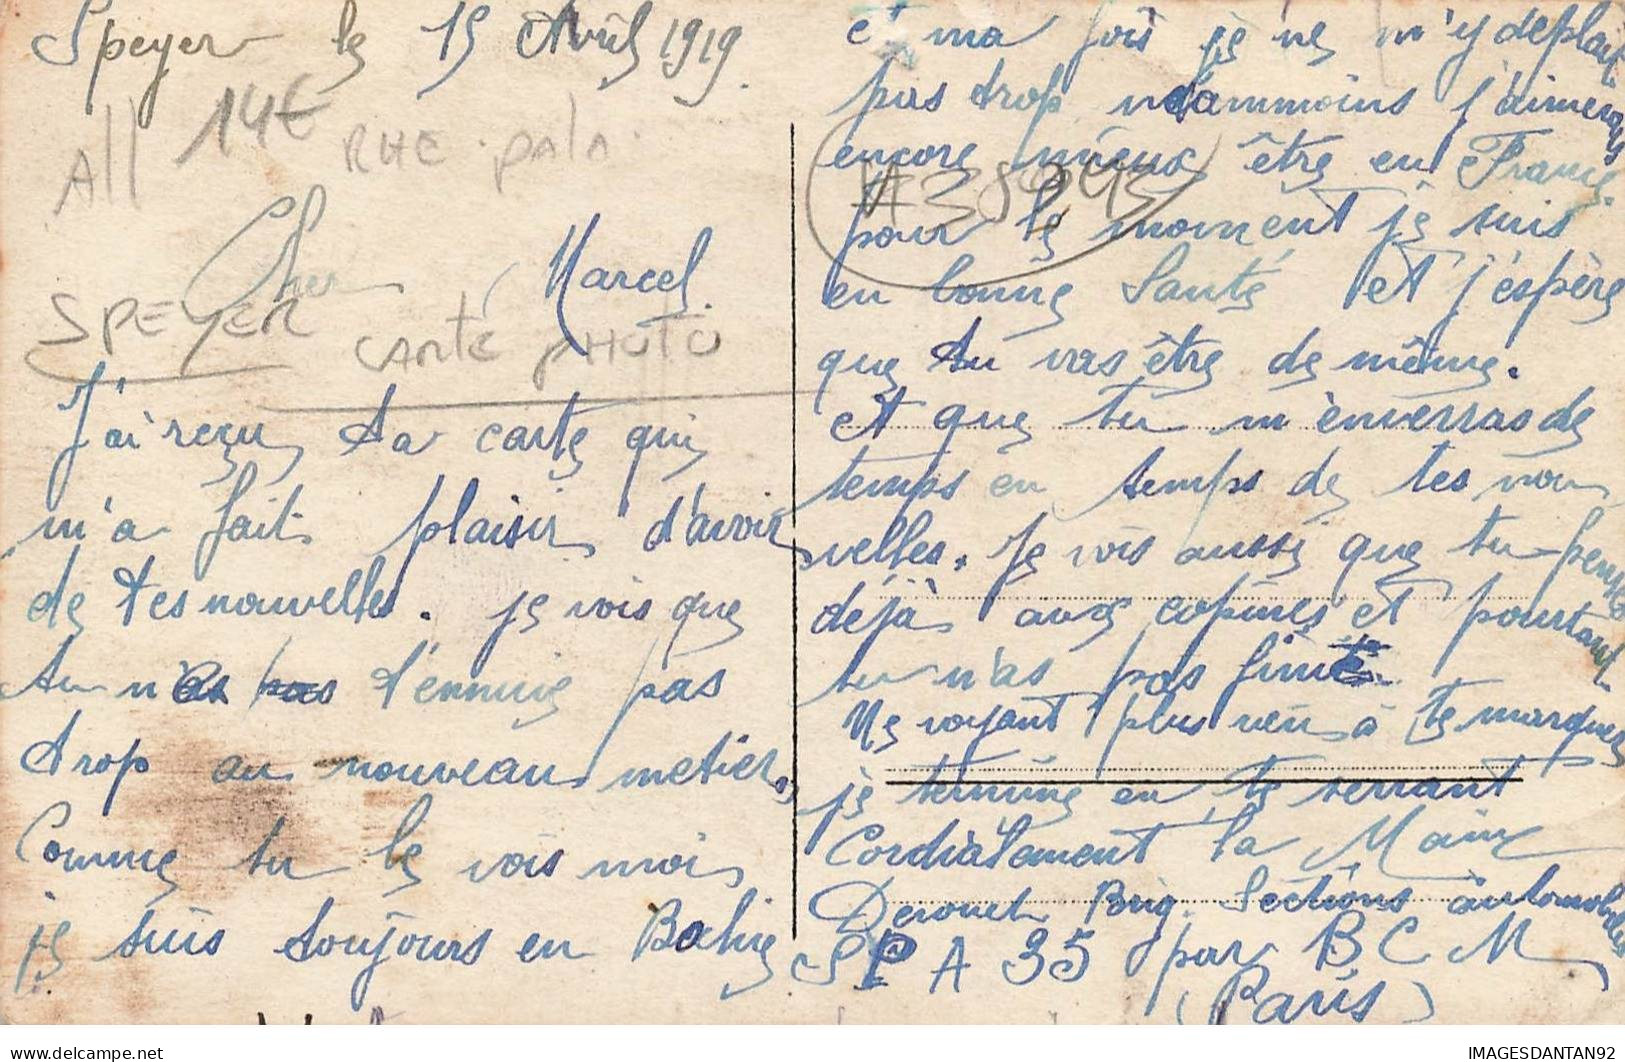 Speyer le 15 Avril 1919.
All 14€ RHE. pala.
Cher Marcel.
SPEYER CARTE PHOTO
J'ai reçu ta carte qui
m'a fait plaisir d'avoir
de tes nouvelles. je vois que
tu n'as pas t'ennuie pas
trop au nouveau metier.
Comme tu le vois moi
je suis toujours en Bochie
et ma fois je ne m'y deplait
pas trop néammoins j'aimerais
encore mieux être en France.
#38943
pour le moment je suis
en bonne Santé et j'éspère
que tu vas être de même.
et que tu m'enverras de
temps en temps de tes nou
velles. Je vois aussi que tu penses
déjà aux copines et pourtant
tu n'as pas finit
Ne voyant plus rien à te marquer
je termine en te serrant
Cordialement la Main
Derouet Brig. Sections automobiles
SP A 35 par B C M
(Paris)
delcampe.net
IMAGESDANTAN92